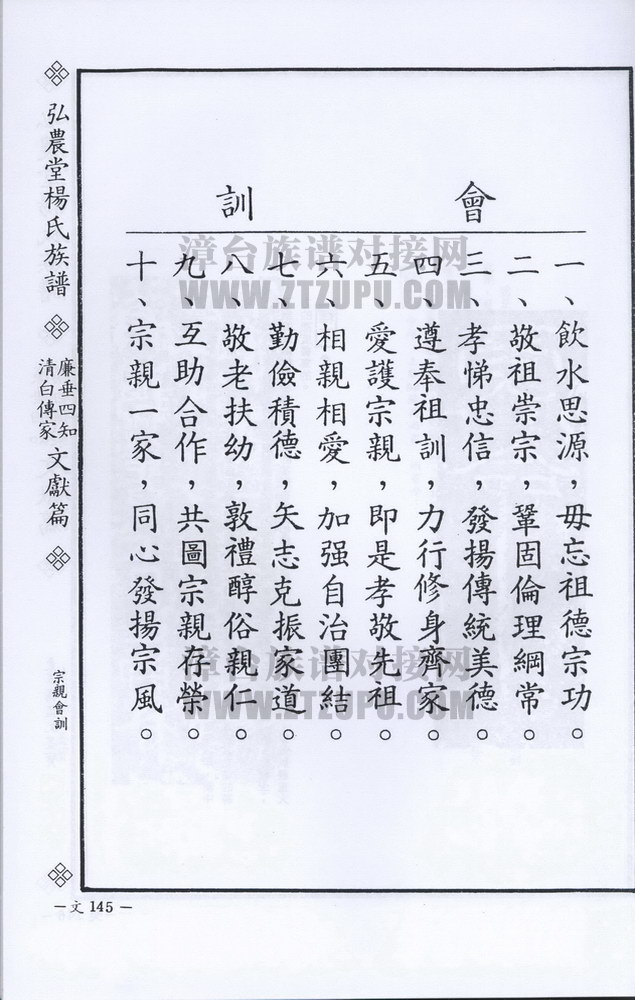 會訓
一、飲水思源，毋忘祖德宗功。
二、敬祖崇宗，鞏固倫理綱常。
三、孝悌忠信，發揚傳統美德。
四、遵奉祖訓，力行修身齊家。
五、愛護宗親，即是孝敬先祖。
六、相親相愛，加强自治團結。
七、勤儉積德，矢志克振家道。
八、敬老扶幼，敦禮醇俗親仁。
九、互助合作，共圖宗親存榮。
十、宗親一家，同心發揚宗風。
弘農堂楊氏族譜
廉垂四知
清白傳家
文獻篇
宗親會訓
—文 145—
漳台族谱对接网
WWW.ZTZUPU.COM
漳台族谱对接网
WWW.ZTZUPU.COM